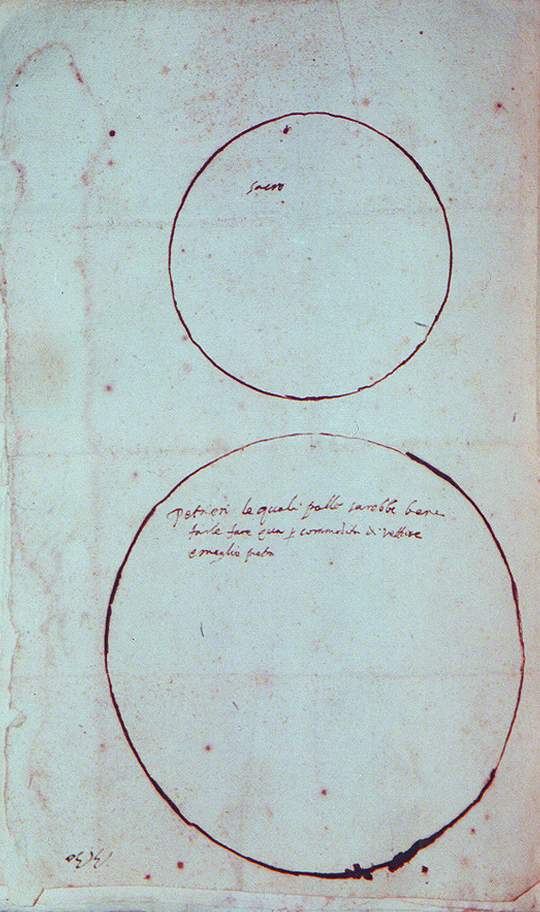 sacro
Petrieri le quali palle sarebbe bene
farle fare qua p commodità di vetture
e meglio petra